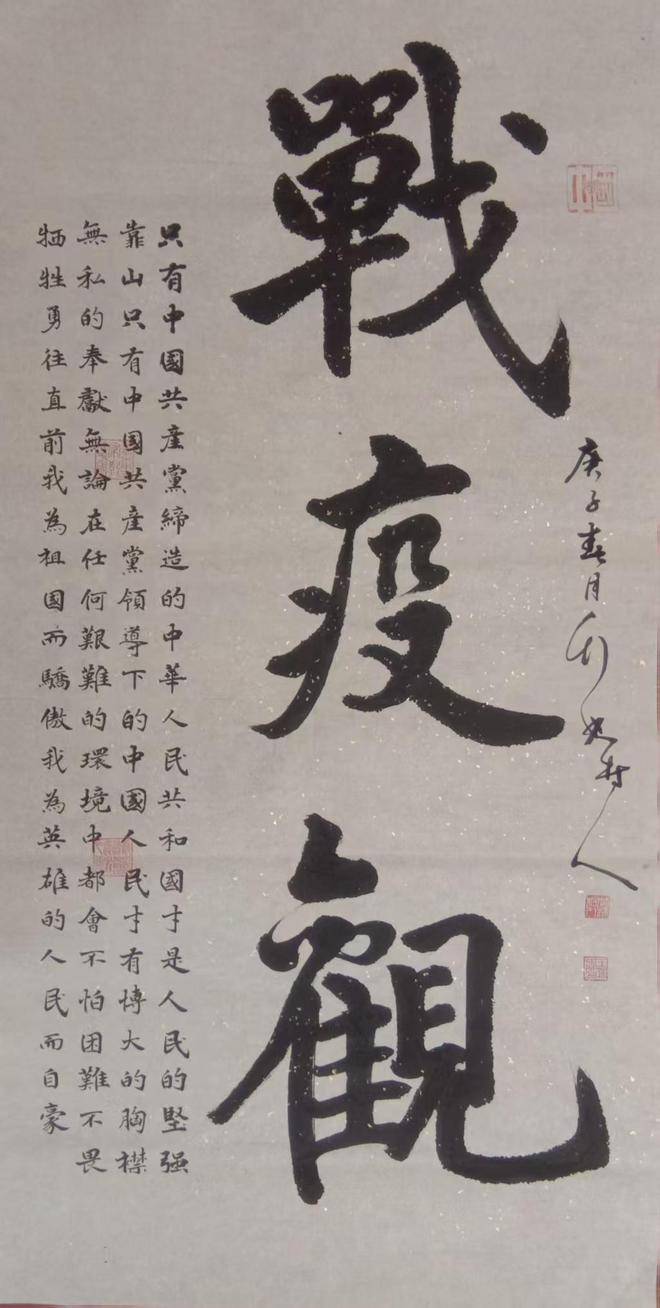 庚子春月
戰疫觀
只有中國共產黨締造的中華人民共和國才是人民的堅强
靠山只有中國共產黨領導下的中國人民才有博大的胸襟
無私的奉獻無論在任何艱難的環境中都會不怕困難不畏
牺牲勇往直前我為祖国而驕傲我為英雄的人民而自豪